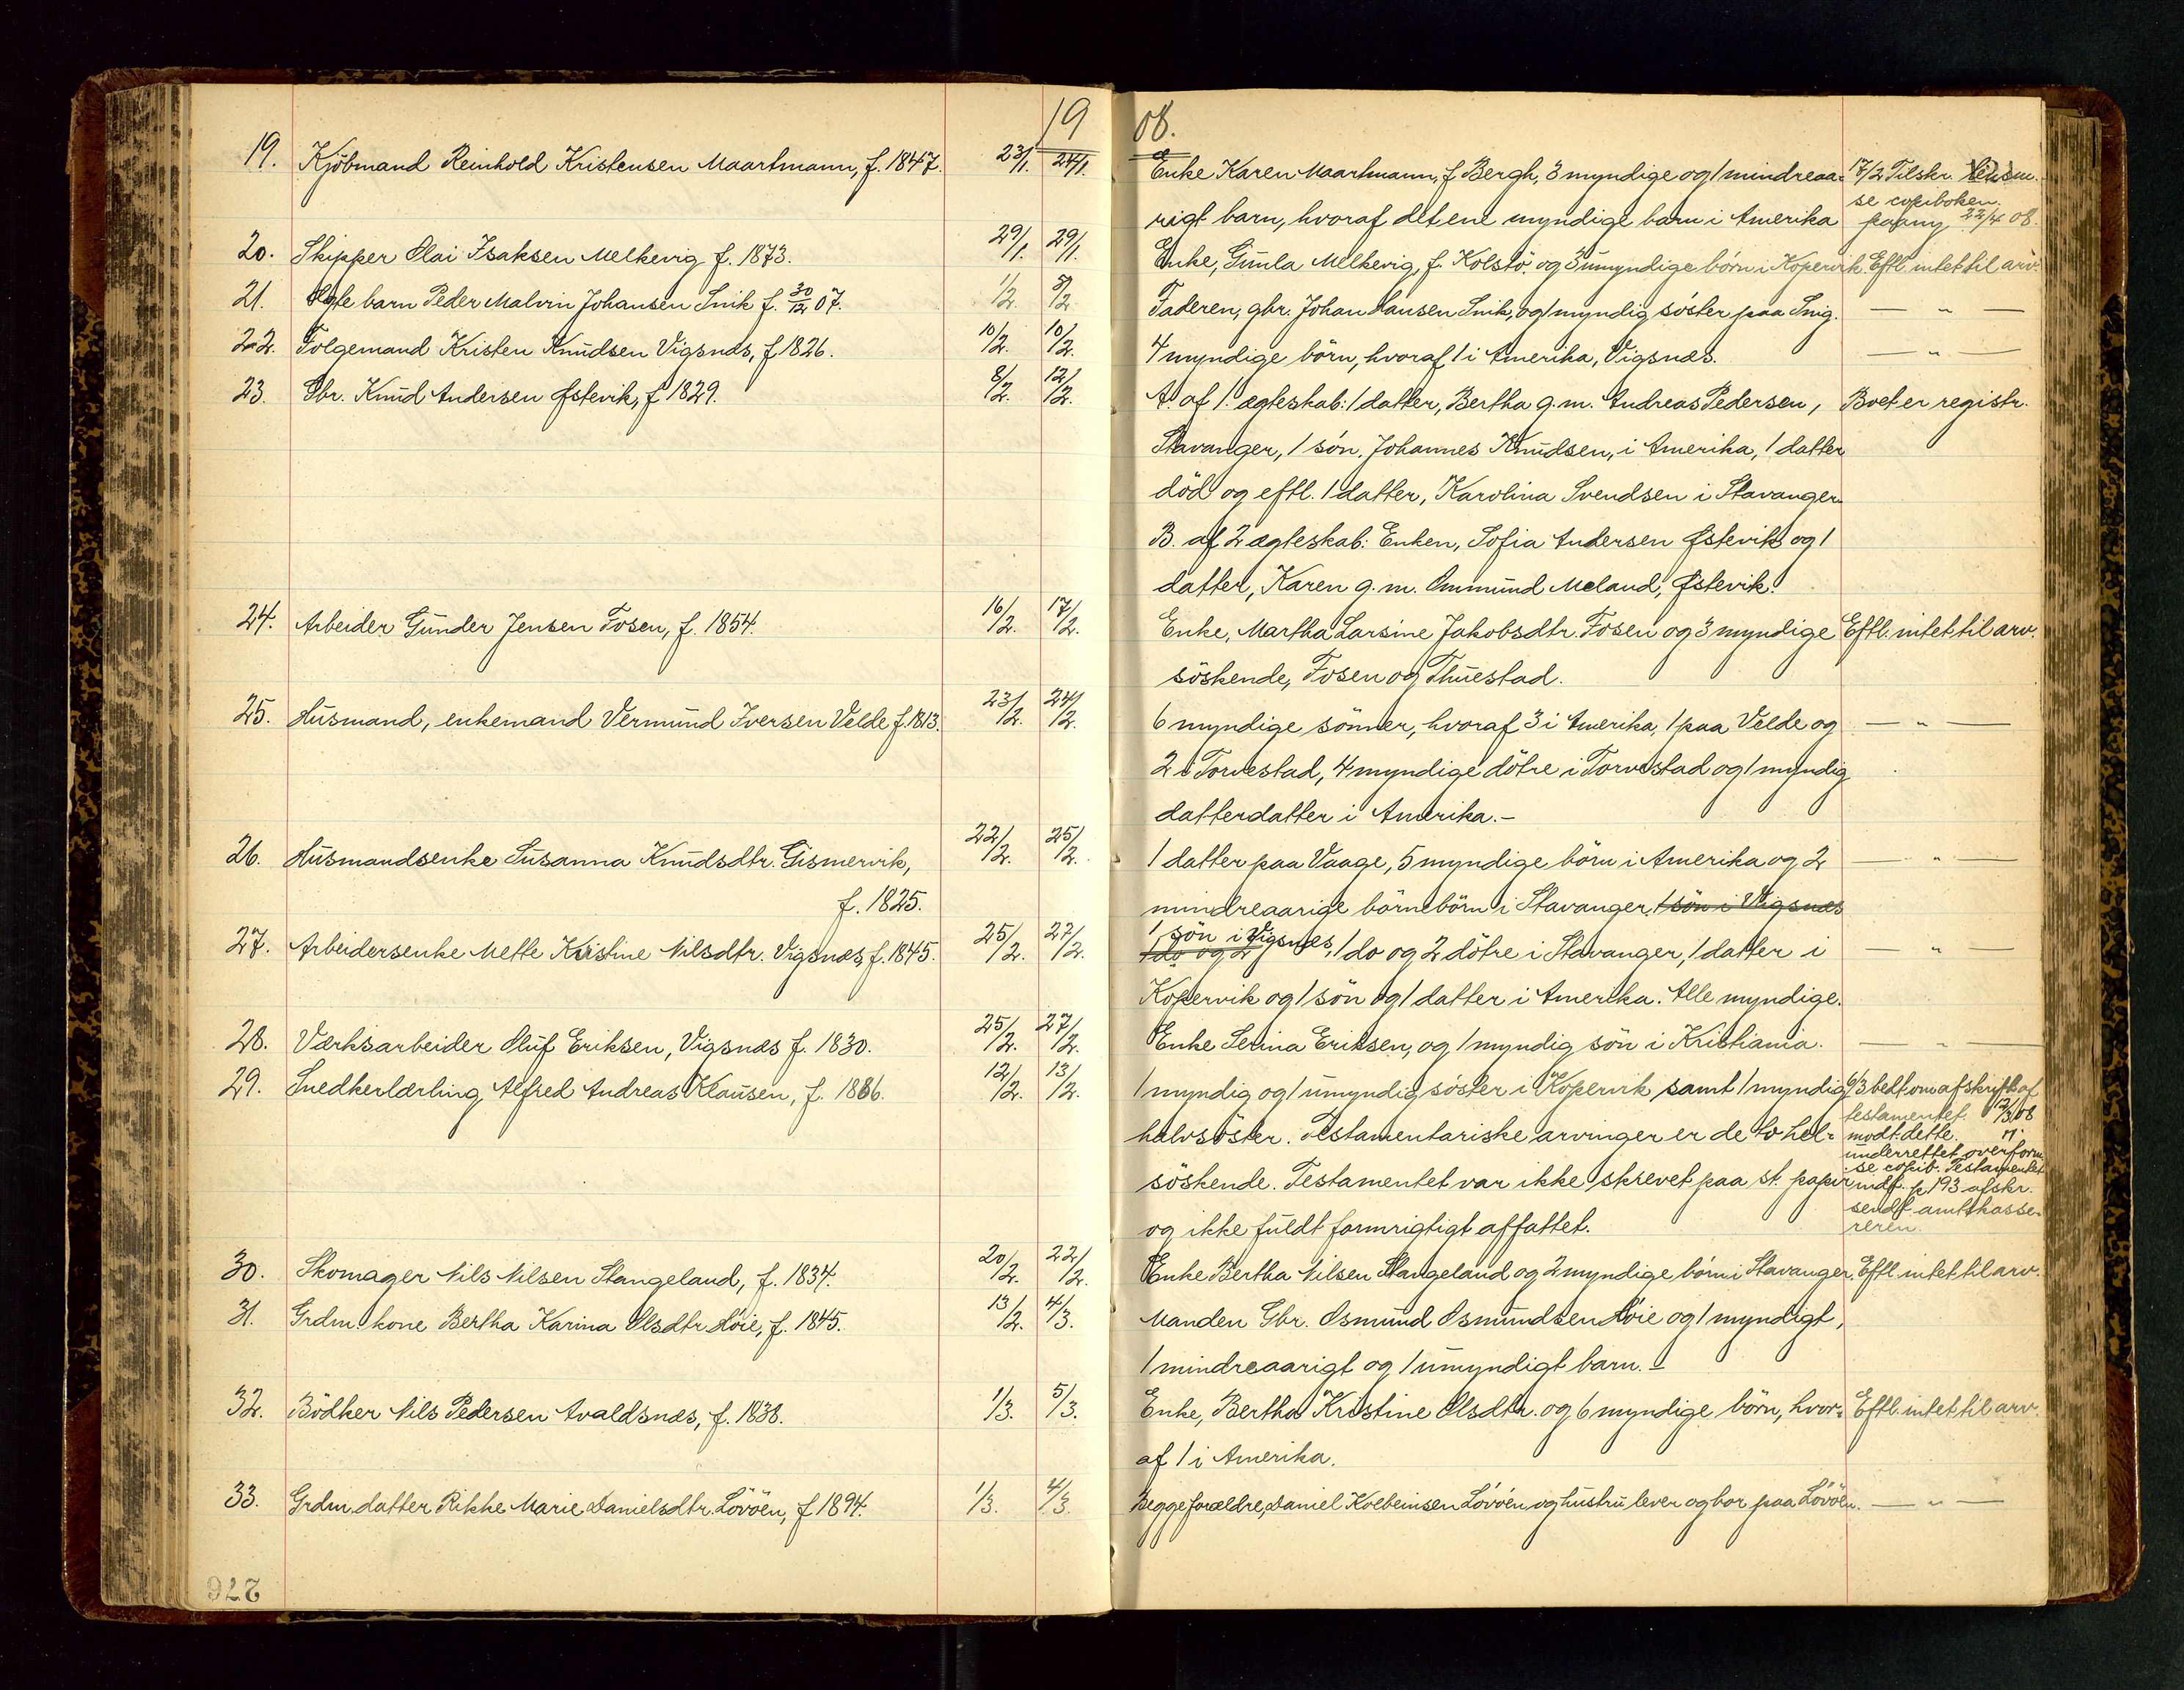 1908.
19. Kjöbmand Reinhold Kristensen Maartmann, f. 1847. 23/1. 24/1. Enke Karen Maartmann, f. Bergh, 3 myndige og 1 mindreaa- 17/2 Tilskr.
se copiboken.
rigt barn, hvoraf det ene myndige barn i Amerika paany 22/4 08.
20. Skipper Olai Isaksen Melkevig f. 1873. 29/1. 29/1. Enke, Gunla Melkevig, f. Kolstö og 3 umyndige börn i Kopervik. Eftl. intet til arv.
21. barn Peder Malvin Johansen Snik f. 30/12 07. 1/2. 8/2 Faderen, gbr. Johan Hansen Snik, og 1 myndig söster paa Snig. — " —
22. Folgemand Kristen Knudsen Vigsnæs, f 1826. 10/2. 10/2. 4 myndige börn, hvoraf 1 i Amerika, Vigsnæs. — " —
23. Gbr. Knud Andersen Østevik, f 1829. 8/2. 12/2. A. af 1. ægteskab: 1 datter, Bertha g. m. Andreas Pedersen, Boet er registr.
Stavanger, 1 sön, Johannes Knudsen, i Amerika, 1 datter
död og eftl. 1 datter, Karolina Svendsen i Stavanger.
B. af 2 ægteskab: Enken, Sofia Andersen Østevik og 1
datter, Karen g. m. Ommund Meland, Østevik.
24. Arbeider Gunder Jensen Fosen, f. 1854. 16/2. 17/2. Enke, Martha Larsine Jakobsdtr. Fosen og 3 myndige Eftl. intet til arv.
söskende, Fosen og Thuestad.
25. Husmand, enkemand Vermund Iversen Velde f. 1813. 23/2. 24/2. 6 myndige sönner, hvoraf 3 i Amerika, 1 paa Velde og — " —
2 i Torvestad, 4 myndige dötre i Torvestad og 1 myndig
datterdatter i Amerika.-
26. Husmandsenke Susanna Knudsdtr. Gismervik, 22/2. 25/2. 1 datter paa Vaage, 5 myndige börn i Amerika og 2 — " —
f. 1825. mindreaarige börnebörn i Stavanger, 1 sön i Vigsnæs
27. Arbeidersenke Mette Kristine Nilsdtr. Vigsnæs, f. 1845. 25/2. 27/2. 1 sön i Vigsnes, 1 do og 2 1 do og 2 dötre i Stavanger, 1 datter i — " —
Kopervik og 1 sön og 1 datter i Amerika. Alle myndige.
28. Værksarbeider Oluf Eriksen, Vigsnæs f. 1830. 25/2. 27/2. Enke Serina Eriksen, og 1 myndig sön i Kristiania. — " —
29. Snedkerlærling Alfred Andreas Klausen, f. 1886. 12/2. 13/2. 1 myndig og 1 umyndig söster i Kopervik samt 1 myndig 6/3 bedt om afskrift af
testamentet. 12/3 08
halvsöster. Testamentariske arvinger er de to hel- modt. dette.
underrettet overform.
se copib. Testamentet
söskende. Testamentet var ikke skrevet paa st. papir indf. p 193 afskr.
sendt amtskasse-
og ikke fuldt formrigtigt affattet. reren.
30. Skomager Nils Nilsen Stangeland, f. 1834. 20/2. 22/2. Enke Bertha Nilsen Stangeland og 2 myndige börn i Stavanger. Eftl. intet til arv.
31. Grdm. kone Bertha Karina Olsdtr Höie, f. 1845. 13/2. 4/3. Manden Gbr. Osmund Osmundsen Höie og 1 myndigt,
1 mindreaarigt og 1 umyndigt barn. -
32. Bödker Nils Pedersen Avaldsnæs, f. 1838. 1/3. 5/3. Enke, Bertha Kristine Olsdtr. og 6 myndige börn, hvor- Eftl. intet til arv.
af 1 i Amerika.
33. Grdm. datter Rikke Marie Danielsdtr. Lövöen, f 1894. 1/3. 4/3. Begge forældre, Daniel Kolbeinsen Lövöen og hustru lever og bor paa Lövöen. — " —